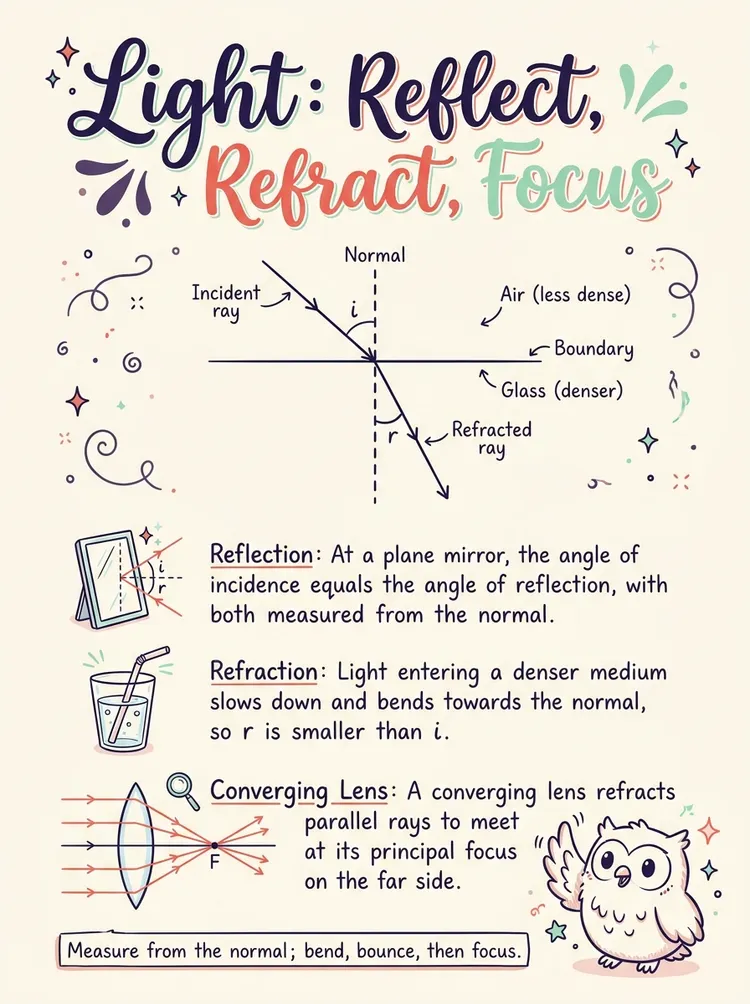 Light: Reflect,
Refract, Focus
Normal
Incident
ray
i
Air (less dense)
Boundary
Glass (denser)
r
Refracted
ray
i
r
Reflection: At a plane mirror, the angle of
incidence equals the angle of reflection, with
both measured from the normal.
Refraction: Light entering a denser medium
slows down and bends towards the normal,
so r is smaller than i.
Converging Lens: A converging lens refracts
parallel rays to meet
at its principal focus
on the far side.
F
Measure from the normal; bend, bounce, then focus.